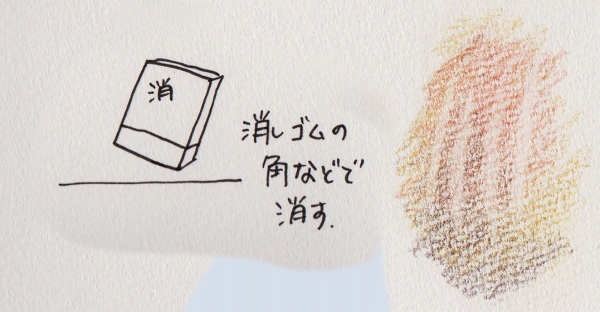 消
消しゴムの
角などで
消す.